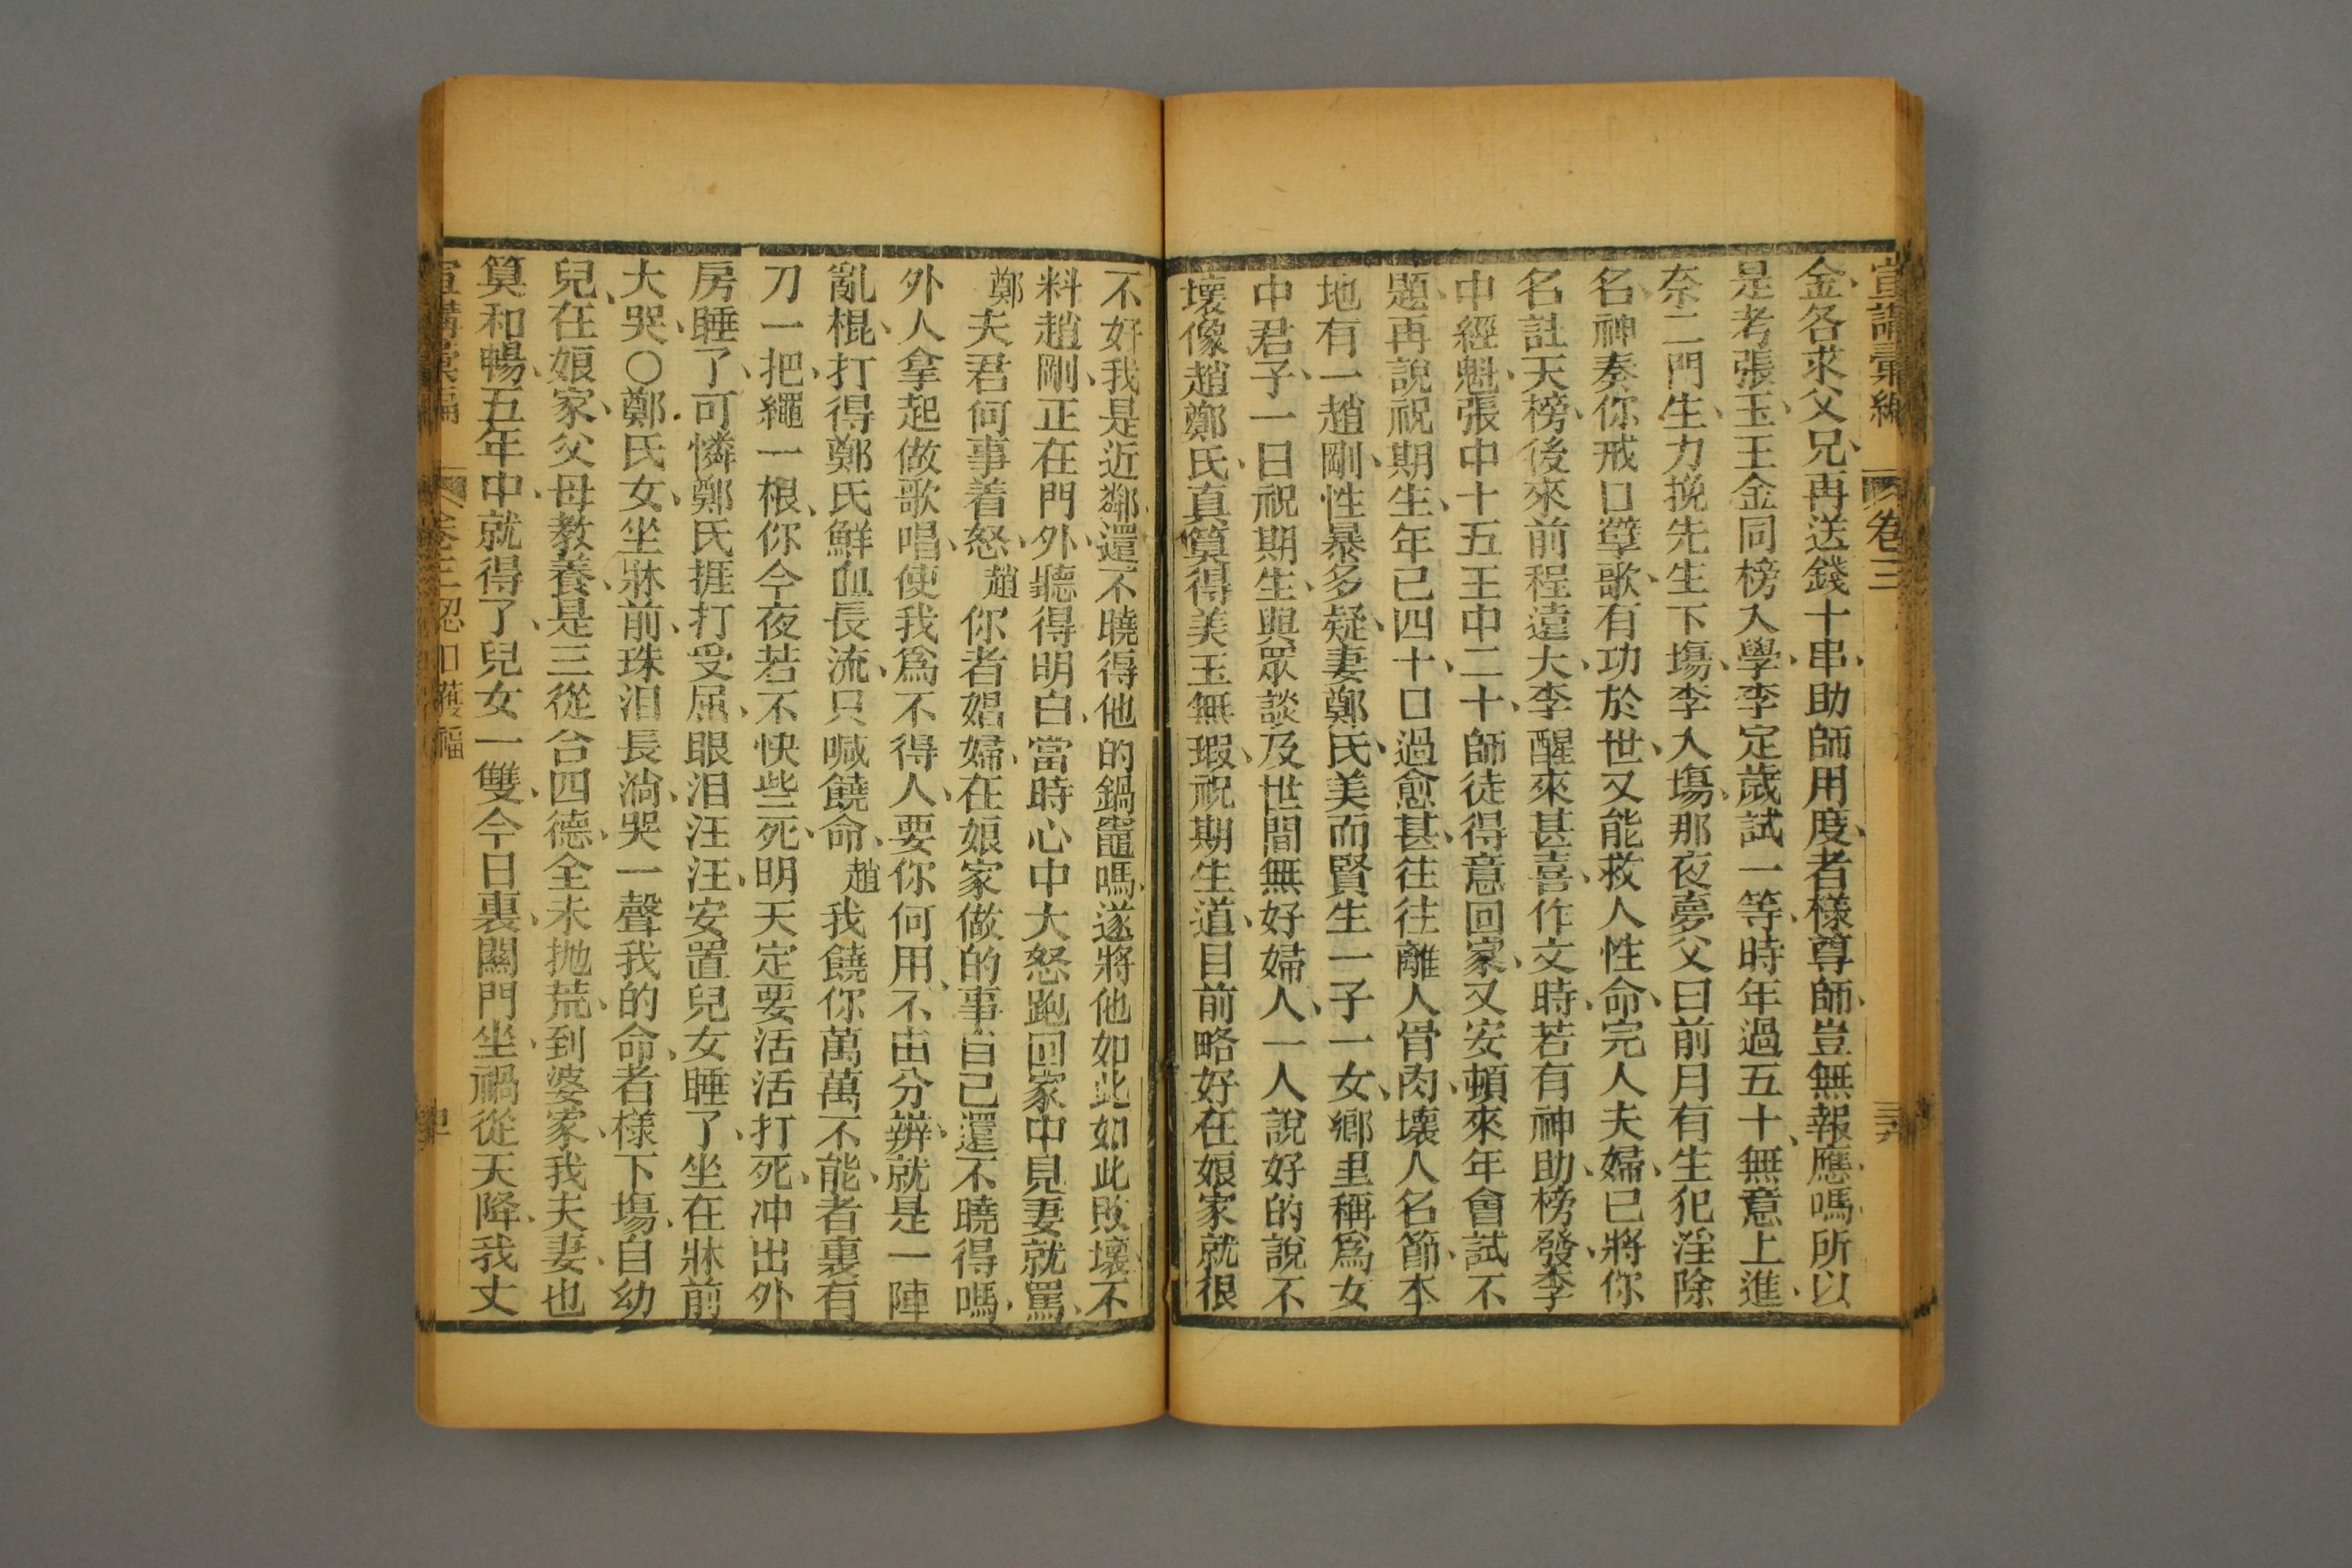 宣講彙編 卷三
金各求父兄再送錢十串助師用度者樣尊師豈無報應嗎所以
是考張玉王金同榜入學李定歲試一等時年過五十無意上進
奈二門生力挽先生下塲李入塲那夜夢父曰前月有生犯淫除
名神奏你戒口孼歌有功於世又能救人性命完人夫婦已將你
名註天榜後來前程遠大李醒來甚喜作文時若有神助榜發李
中經魁張中十五王中二十師徒得意回家又安頓來年會試不
題再說祝期生年已四十口過愈甚往往離人骨肉壞人名節本
地有一趙剛性暴多疑妻鄭氏美而賢生一子一女鄉里稱爲女
中君子一日祝期生與眾談及世間無好婦人一人說好的說不
壞像趙鄭氏真算得美玉無瑕祝期生道目前略好在娘家就很
不好我是近鄰還不曉得他的鍋竈嗎遂將他如此如此敗壞不
料趙剛正在門外聽得明白當時心中大怒跑回家中見妻就罵
鄭夫君何事着怒趙你者娼婦在娘家做的事自己還不曉得嗎
外人拿起做歌唱使我爲不得人要你何用不由分辨就是一陣
亂棍打得鄭氏鮮血長流只喊饒命趙我饒你萬萬不能者裏有
刀一把繩一根你今夜若不快些死明天定要活活打死冲出外
房睡了可憐鄭氏捱打受屈眼泪汪汪安置兒女睡了坐在牀前
大哭○鄭氏女坐牀前珠泪長淌哭一聲我的命者樣下塲自幼
兒在娘家父母教養是三從合四德全未拋荒到婆家我夫妻也
算和暢五年中就得了兒女一雙今日裏關門坐禍從天降我丈
宣講彙編 卷三 忍口獲福